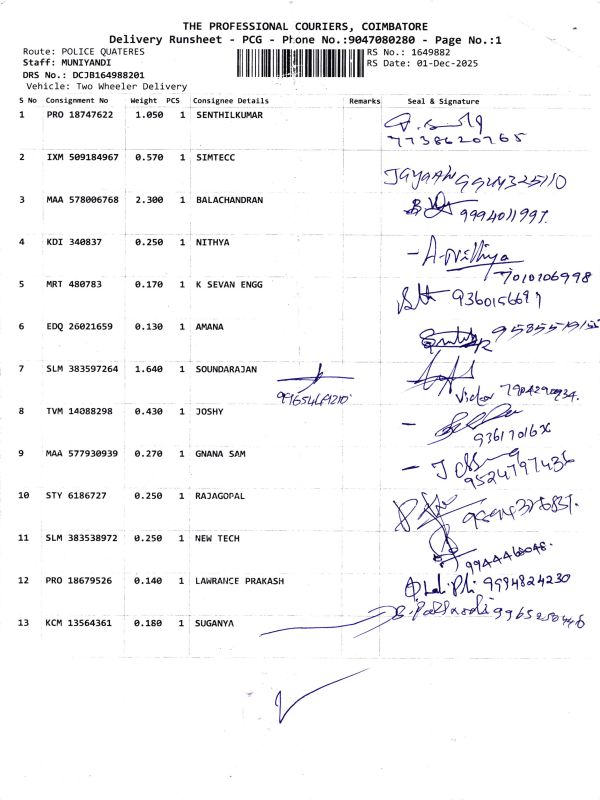 THE PROFESSIONAL COURIERS, COIMBATORE
Delivery Runsheet - PCG - Phone No.:9047080280 - Page No.:1
Route: POLICE QUATERES RS No.: 1649882
Staff: MUNIYANDI RS Date: 01-Dec-2025
DRS No.: DCJB164988201
Vehicle: Two Wheeler Delivery
S No Consignment No Weight PCS Consignee Details Remarks Seal & Signature
1 PRO 18747622 1.050 1 SENTHILKUMAR
7738620765
2 IXM 509184967 0.570 1 SIMTECC
9924325110
3 MAA 578006768 2.300 1 BALACHANDRAN
9994011997.
4 KDI 340837 0.250 1 NITHYA
- A-Nithiya
7010106998
5 MRT 480783 0.170 1 K SEVAN ENGG
9360156697
6 EDQ 26021659 0.130 1 AMANA
7 SLM 383597264 1.640 1 SOUNDARAJAN
Victor 7904290934.
8 TVM 14088298 0.430 1 JOSHY
9 MAA 577930939 0.270 1 GNANA SAM
9524797436
10 STY 6186727 0.250 1 RAJAGOPAL
11 SLM 383538972 0.250 1 NEW TECH
12 PRO 18679526 0.140 1 LAWRANCE PRAKASH
9994824230
13 KCM 13564361 0.180 1 SUGANYA
9965250446